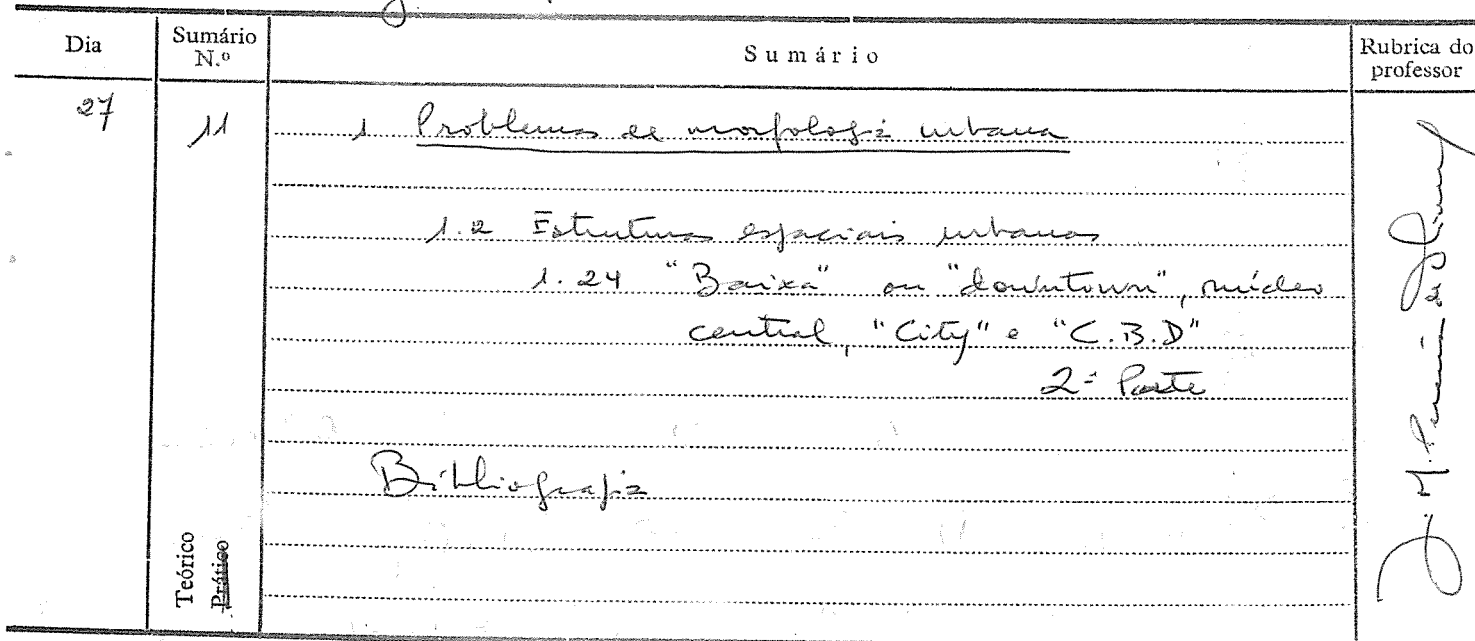 Dia
Sumário N.º
Sumário
Rubrica do professor
27
11
1 Problemas de morfologia urbana
1.2 Estruturas espaciais urbanas
1.24 "Baixa" ou "downtown", núcleo
central, "City" e "C.B.D"
2ª Parte
Bibliografia
Teórico
Prático
J. M. Pereira